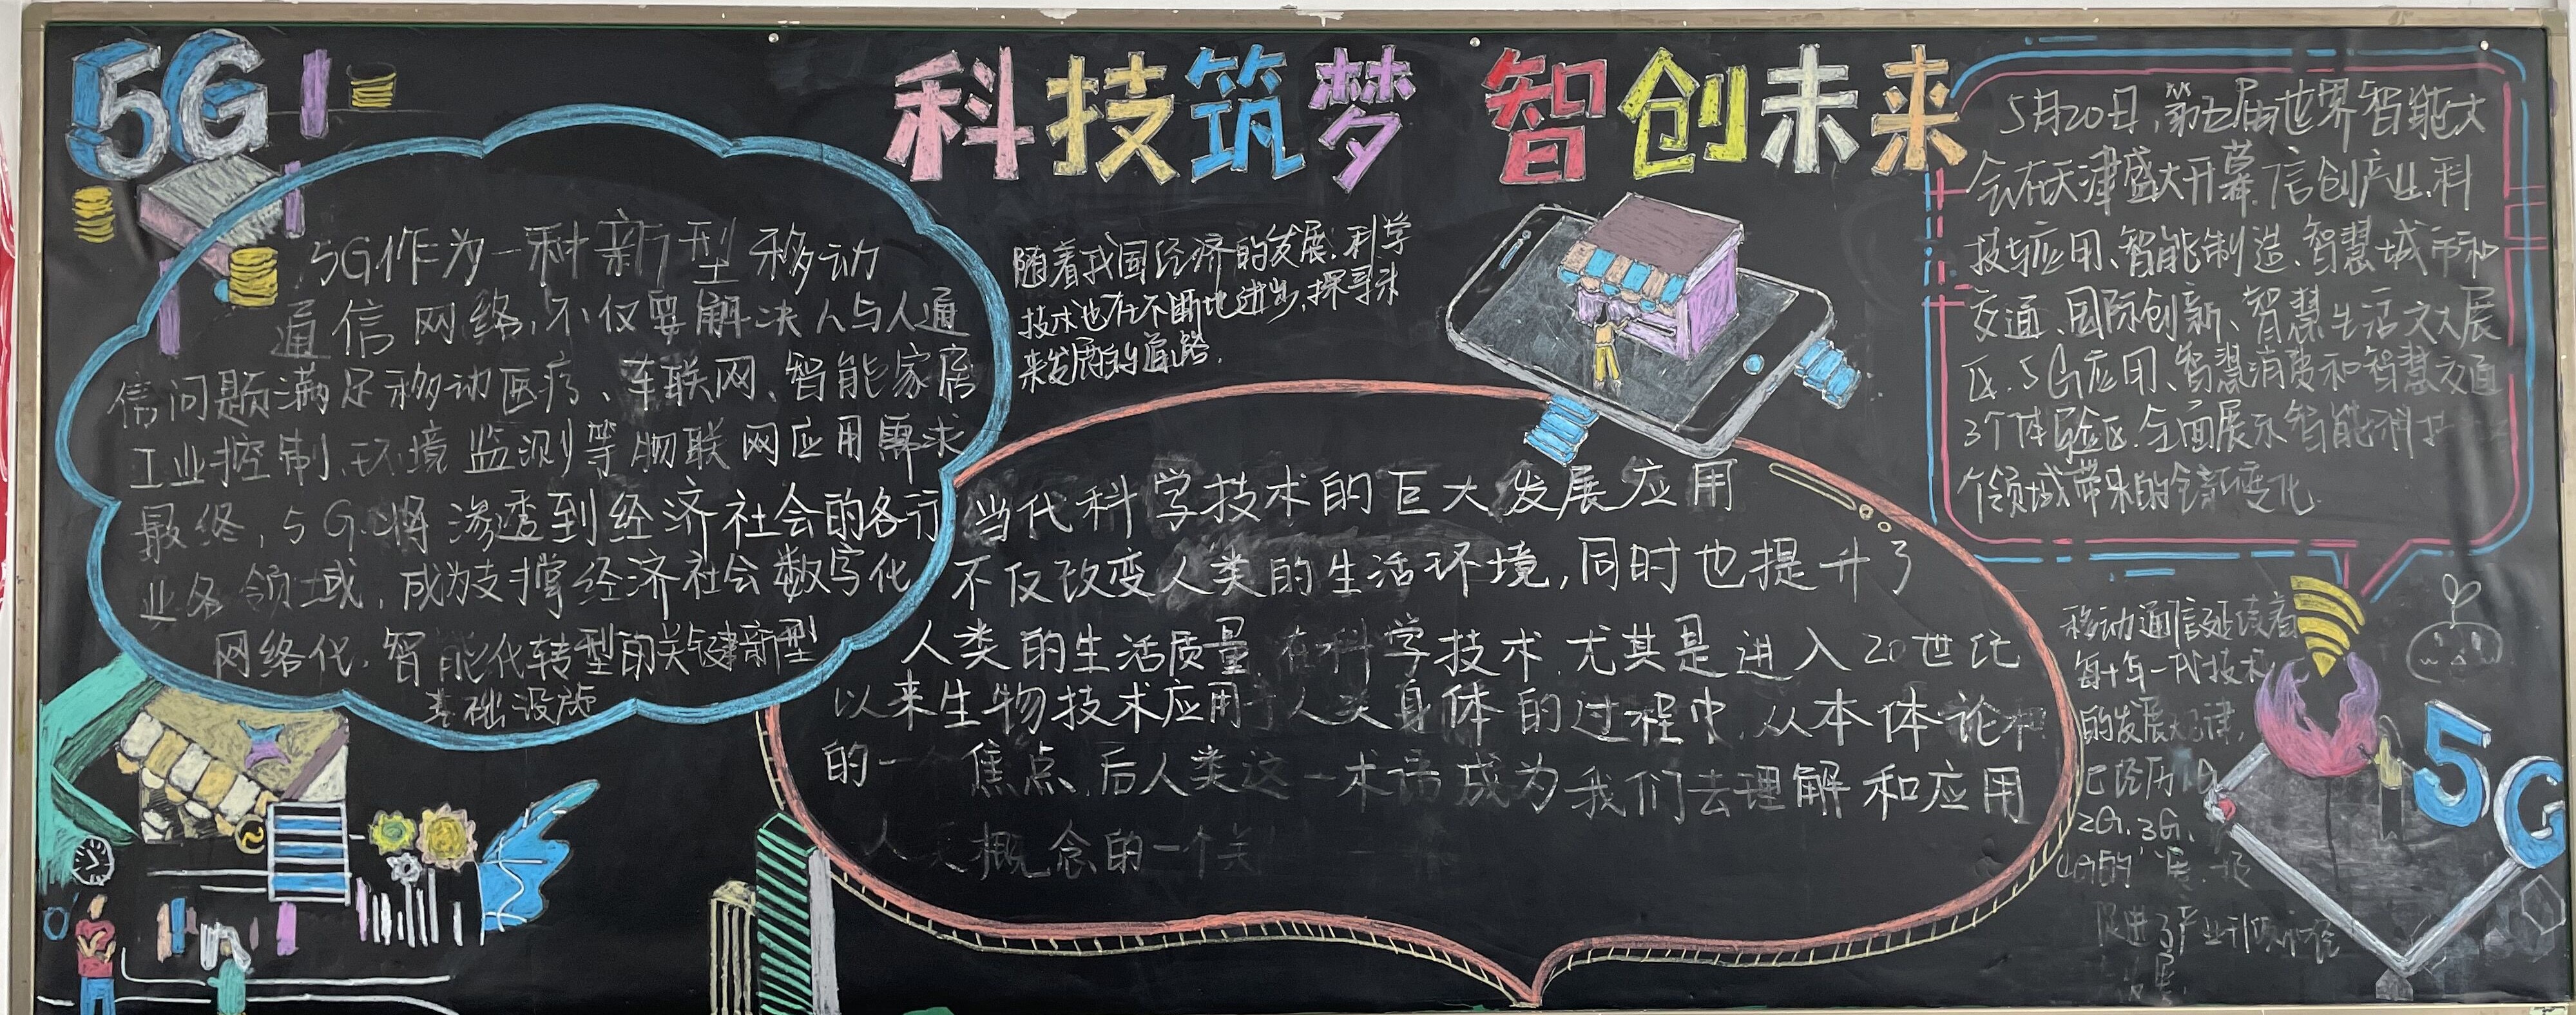 5G
科技筑梦 智创未来
5G作为一种新型移动
通信网络,不仅要解决人与人通
信问题满足移动医疗、车联网、智能家居
工业控制、环境监测等物联网应用需求
最终,5G将渗透到经济社会的各行
业各领域,成为支撑经济社会数字化
网络化,智能化转型的关键新型
基础设施
随着我国经济的发展,科学
技术也在不断地进步,探寻未
来发展的道路.
当代科学技术的巨大发展应用
不仅改变人类的生活环境,同时也提升了
人类的生活质量 在科学技术,尤其是进入20世纪
以来生物技术应用于人类身体的过程中,从本体论和
的一个焦点,后人类这一术语成为我们去理解和应用
人类概念的一个关
5月20日,第五届世界智能大
会在天津盛大开幕,信创产业,科
技与应用、智能制造、智慧城市和
交通、国际创新、智慧生活六大展
区、5G应用、智慧消费和智慧交通
3个体验区,全面展示智能科技
个领域带来的全新变化.
移动通信延续着
每十年一代技术
的发展规律,
已经历1G
2G、3G、
4G的展.
促进了产业
展.
5G